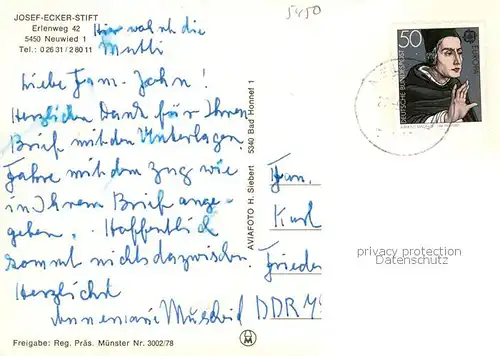 JOSEF-ECKER-STIFT
Erlenweg 42
5450 Neuwied 1
Tel.: 0 26 31 / 2 80 11
Hier die
Mutti
5450
50
DEUTSCHE BUNDESPOST
EUROPA
Liebe Fam. Jahn!
Herzlichen Dank für Ihren
Brief mit den Unterlagen.
Fahre mit dem Zug wie
in Ihrem Brief ange-
geben. Hoffentlich
kommt nichts dazwischen.
Herzlichst
Annemarie
AVIAFOTO H. Siebert 5340 Bad Honnef 1
Fam.
Karl
Frieden
DDR
privacy protection
Datenschutz
Freigabe: Reg. Präs. Münster Nr. 3002/78